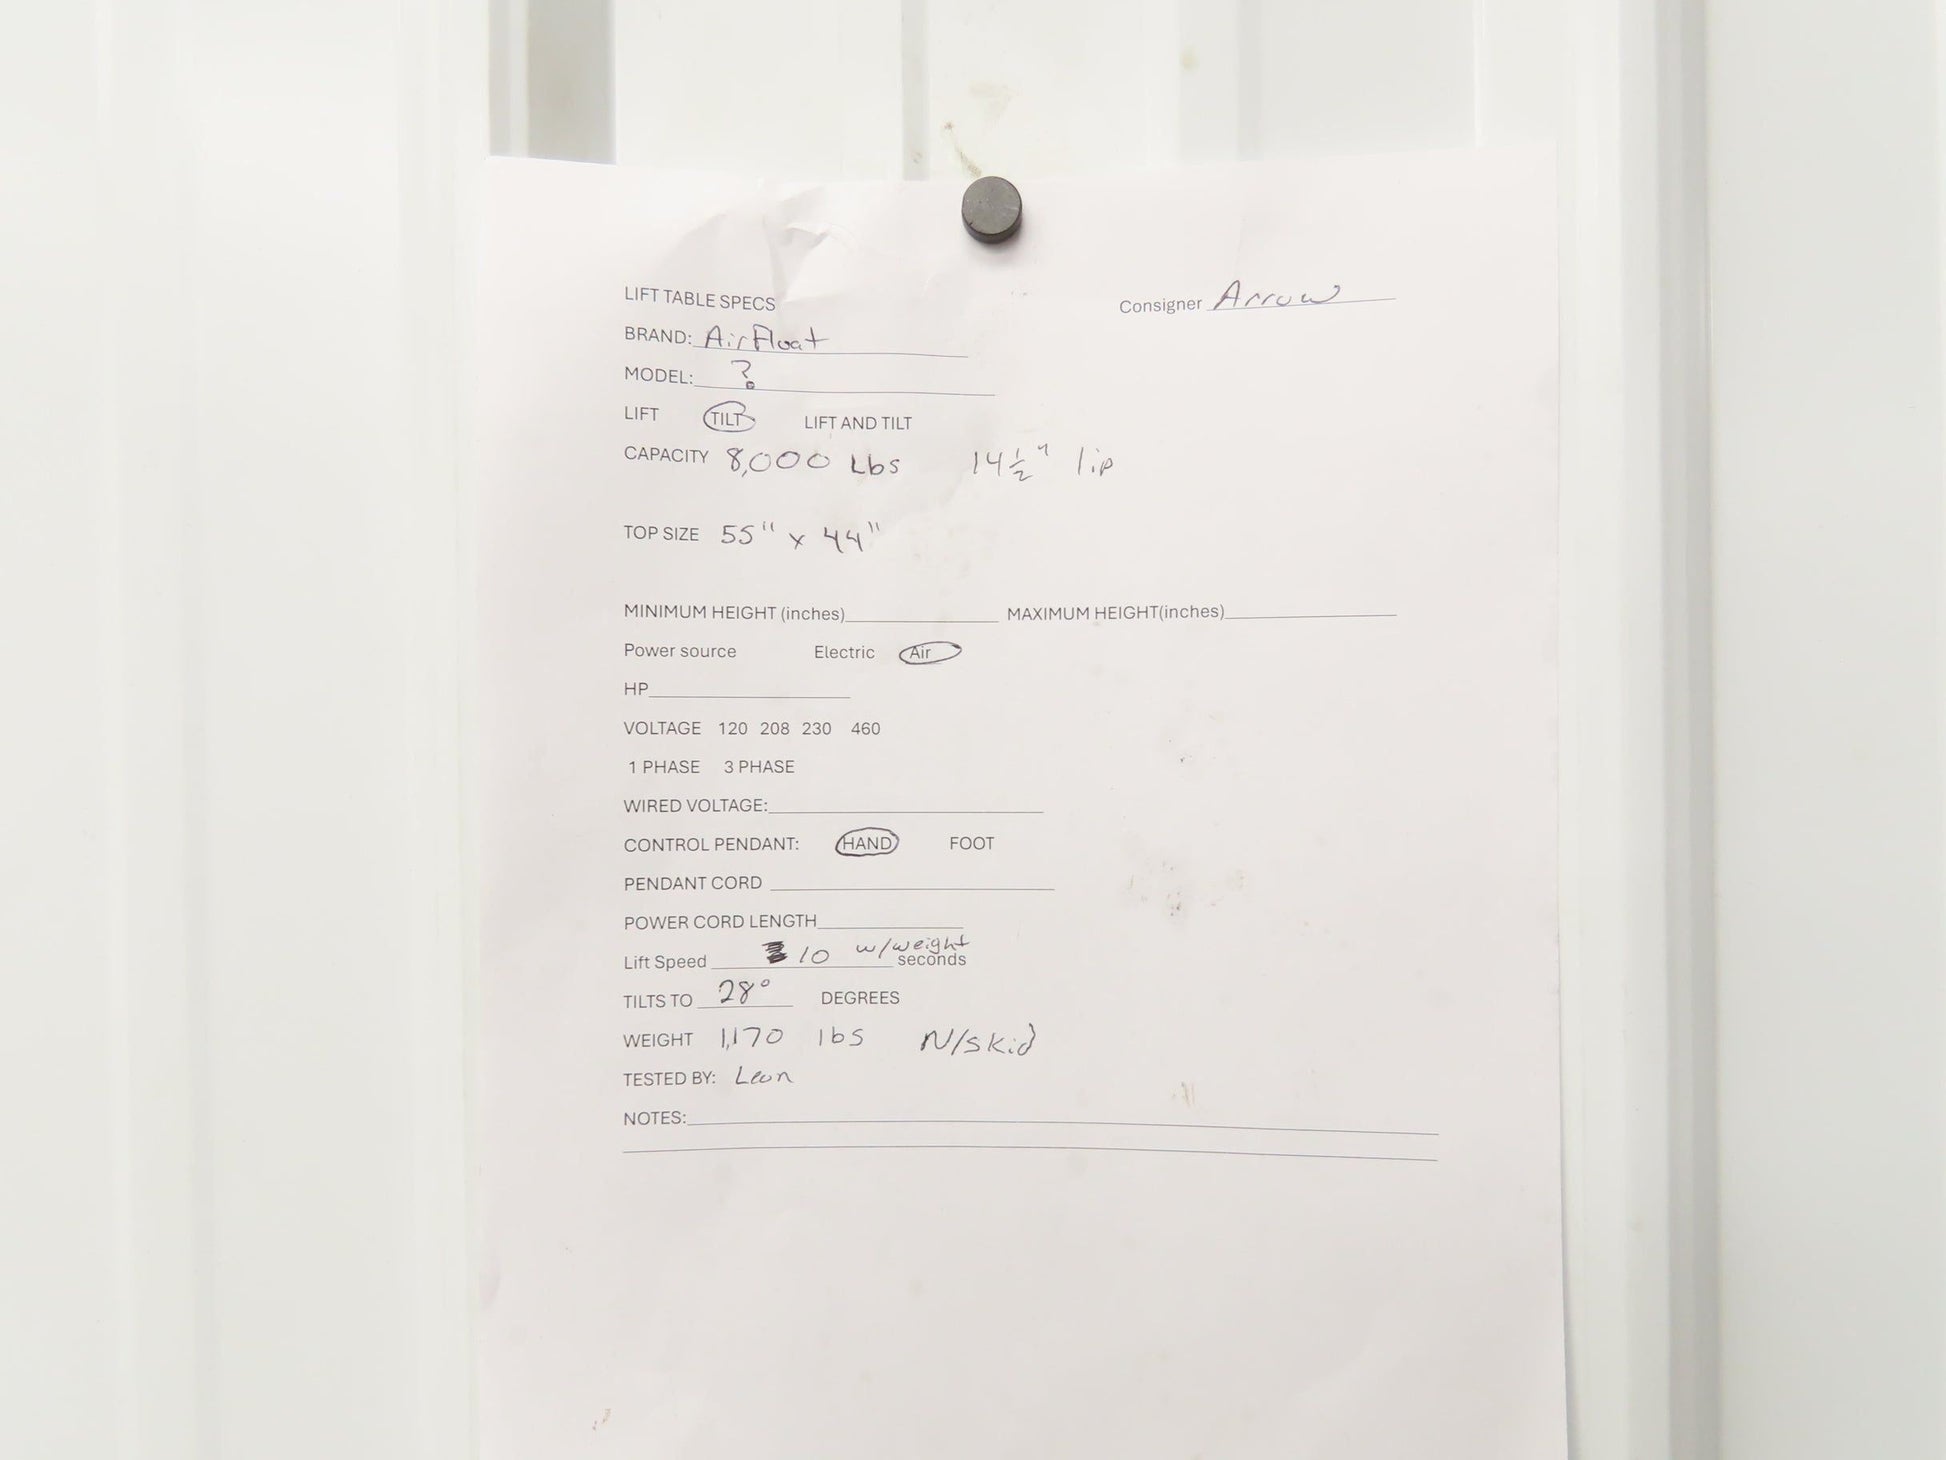 LIFT TABLE SPECS
Consigner Arrow
BRAND: AirFloat
MODEL: ?
LIFT TILT LIFT AND TILT
CAPACITY 8,000 Lbs 14 1/2" lip
TOP SIZE 55" x 44"
MINIMUM HEIGHT (inches) MAXIMUM HEIGHT(inches)
Power source Electric Air
HP
VOLTAGE 120 208 230 460
1 PHASE 3 PHASE
WIRED VOLTAGE:
CONTROL PENDANT: HAND FOOT
PENDANT CORD
POWER CORD LENGTH
Lift Speed 10 w/weight seconds
TILTS TO 28° DEGREES
WEIGHT 1,170 lbs N/skid
TESTED BY: Leon
NOTES: